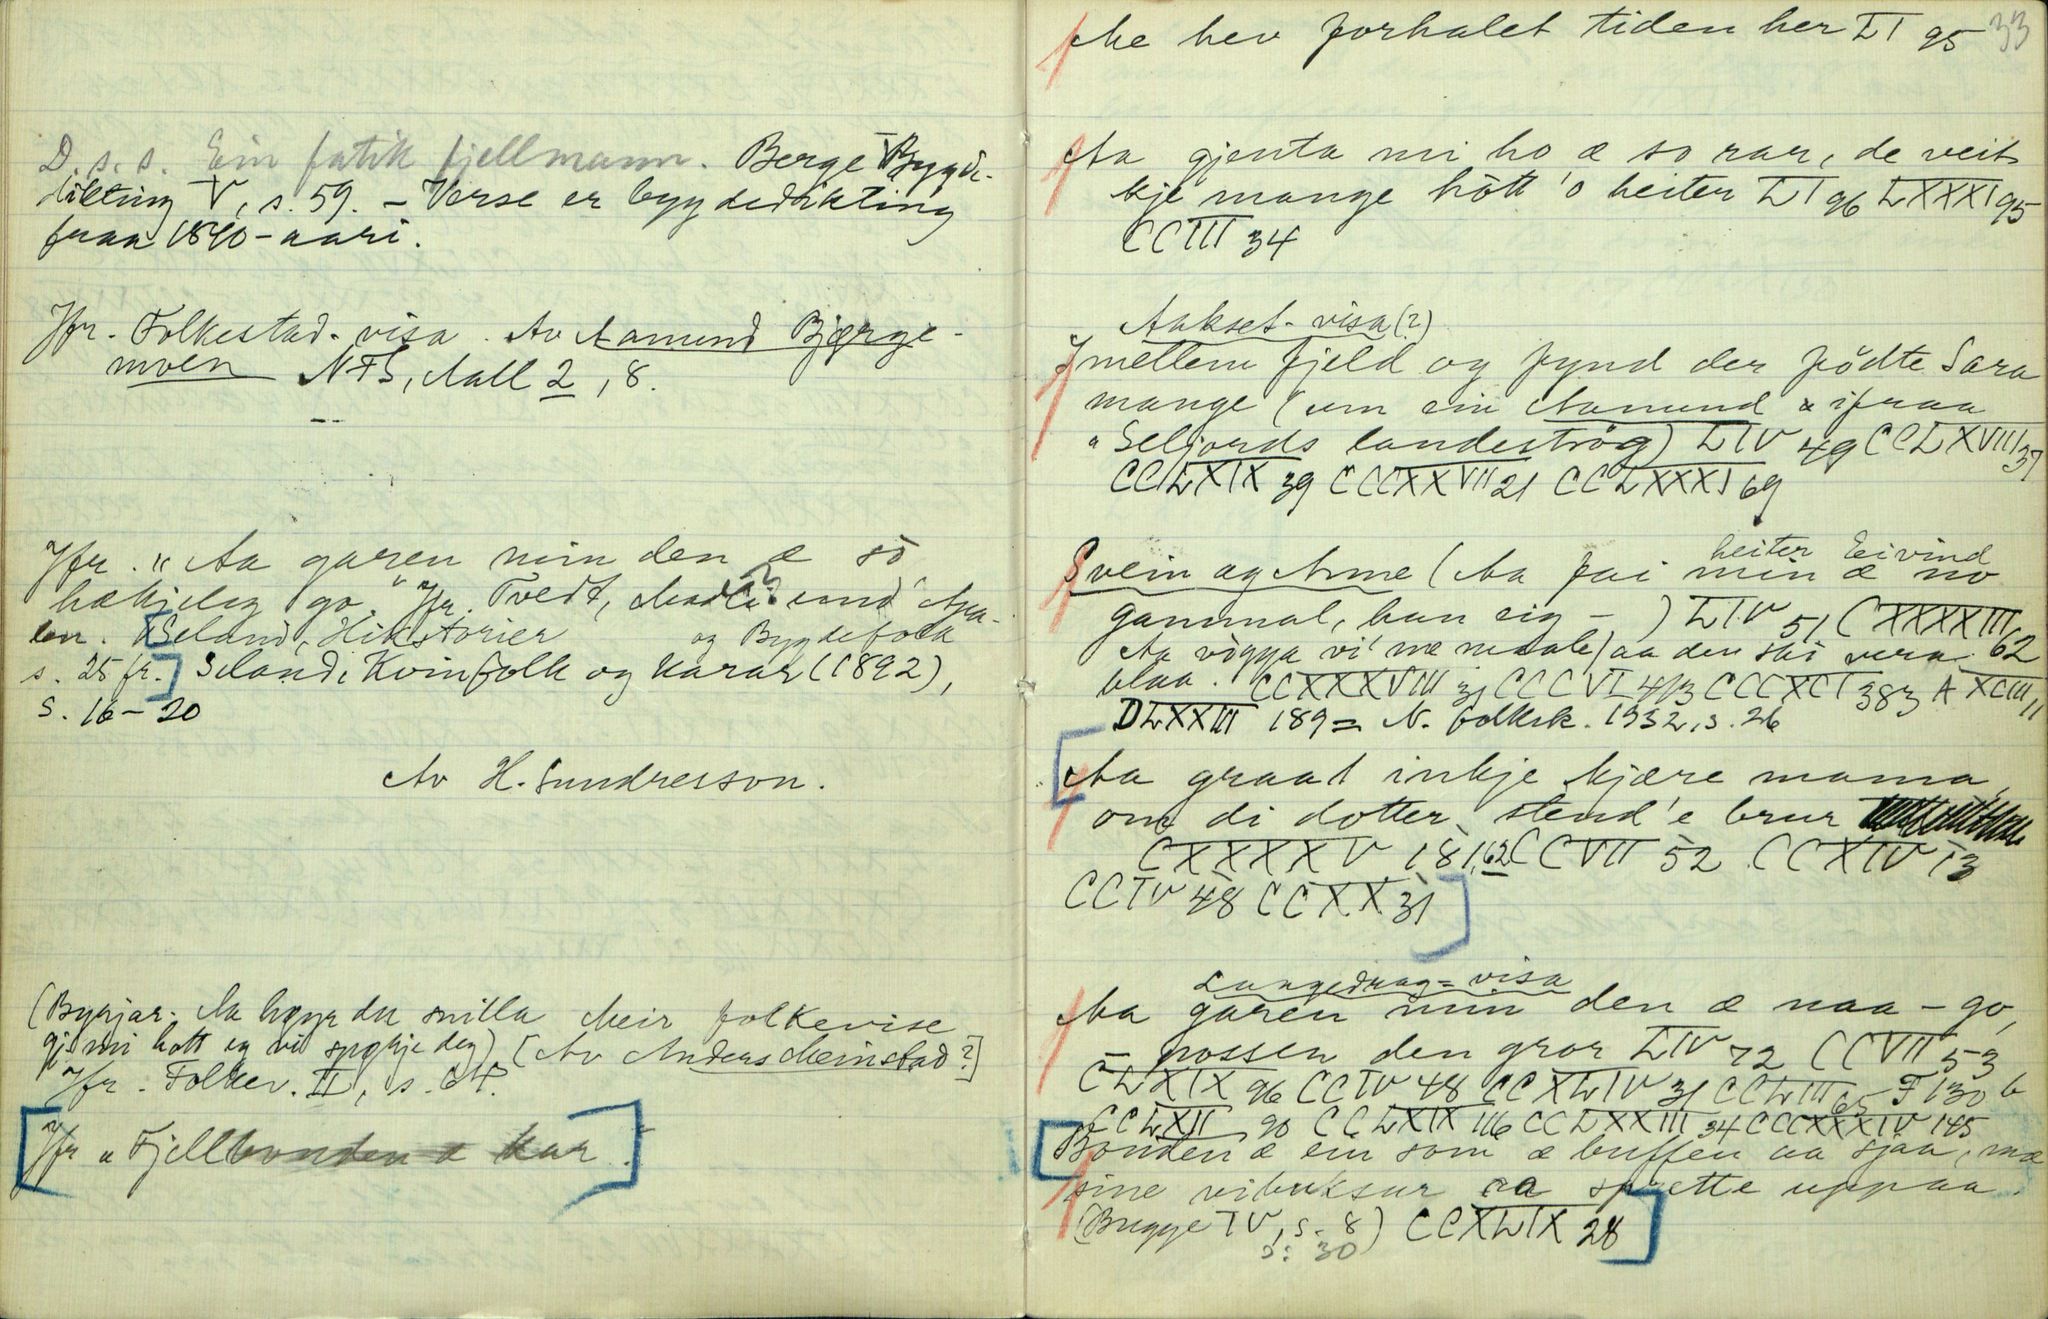 D.s.s. Ein fatik fjellmann. Berge Bygde-
dikting V, s. 59. - Verse er bygdedikting
fraa 1840-aari.
Jfr. Folkestad-visa. Av Aamund Bjørge-
moen NFS, Aall 2, 8.
Jfr. "Aa garen min den æ so
hækjeleg go." Jfr. Tvedt,
[Seland, Historier og Bygdefolk
s. 25 fr.] Seland, Kvinfolk og Karar (1892),
S. 16-20
Av H. Sundresson.
(Byrjar. Aa høyr du snilla
gj. mi hott eg vil spørkje deg)
Meir folkevise
[Av Anders Meinstad?]
Jfr. Folkev. II, s. 67.
[Jfr "Fjellbonden æ kar.]
33
Me hev forhalet tiden her LI 95
Aa gjenta mi ho æ so rar, de veit
kje mange hòtt 'o heiter LI 96 LXXXI 95
CCIII 34
Aakset-visa (?)
Imellem fjeld og fynd der födte Sara
mange (um ein Aamund ifraa
Seljords landeströg) LIV 49 CCLXVIII 37
CCLXIX 39 CCCXXVII 21 CCLXXXI 69
Svein og Anne (Aa fai min heiter Eivind æ no
gammal, han sig - ) LIV 51 CXXXXIII 62
Aa vògga vi' me maale / aa den ska vera
blaa. CCXXXVIII 31 CCCVI 413 CCCXCI 383 A XCIII, 11
DLXXVI 189 = N. folkek. 1932, s. 26
[Aa graat inkje kjære mama
om di dotter stend'e brur
CXXXXV 181, 62 CCVII 52 CCXIV 13
CCIV 48 CCXX 31]
Langedrag-visa
Aa garen min den æ naa-go,
possen den gror LIV 72 CCVII 53
CLXIX 96 CCIV 48 CCXLIV 31 CCLIII 65 F 130 b
CCLXII 90 CCLXIX 116 CCLXXIII 34 CCCXXXIV 145
[Bonden æ ein som æ buffen aa sjaa, mæ
sine vibuksur aa sprette uppaa.
(Bugge IV, s. 8) CCXLIX 28]
s: 30